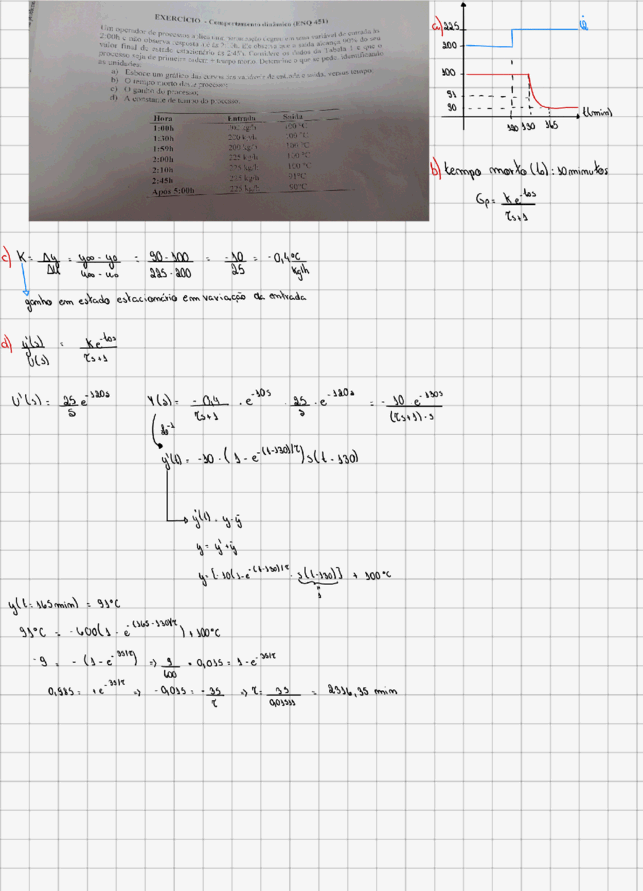 EXERCÍCIO - Comportamento dinâmico (ENQ 451)
2:00h e não observa resposta até às 2:10h. Ele observa que a saída alcança 90% do seu
valor final de estado estacionário às 2:45h. Considere os dados da Tabela 1 e que o
processo seja de primeira ordem e tempo morto. Determine o que se pede, identificando
as unidades:
a) Esboce um gráfico das curvas das variáveis de entrada e saída, versus tempo;
b) O tempo morto deste processo;
c) O ganho do processo;
d) A constante de tempo do processo.
Hora Entrada Saída
1:00h 200 kg/h 100 °C
1:30h 200 kg/h 100 °C
1:59h 200 kg/h 100 °C
2:00h 225 kg/h 100 °C
2:10h 225 kg/h 100 °C
2:45h 225 kg/h 91°C
Após 5:00h 225 kg/h 90°C
a) 225
200
100
91
90
120 130 165 t(min)
b) tempo morto (to): 10 minutos
Gp= Ke^-tos / τs+1
c) K= Δy/Δu = y∞ - y0 / u∞ - u0 = 90-100 / 225-200 = -10/25 = -0,4 °C / kg/h
ganho em estado estacionário em variação da entrada
d) y'(s)/U'(s) = Ke^-tos / τs+1
U'(s)= 25/s e^-120s Y(s)= -0,4/τs+1 · e^-10s · 25/s · e^-120s = -10 e^-130s / (τs+1)·s
y'(t)= -10·(1-e^-(t-130)/τ) s(t-130)
y'(t) = y-ȳ
y= y'+ȳ
y= [-10(1-e^-(t-130)/τ · s(t-130)] + 100°C
1
y(t=165min) = 91°C
91°C = -600(1-e^-(165-130)/τ) + 100°C
-9 = -(1-e^-35/τ) => 9/600 = 0,015 = 1-e^-35/τ